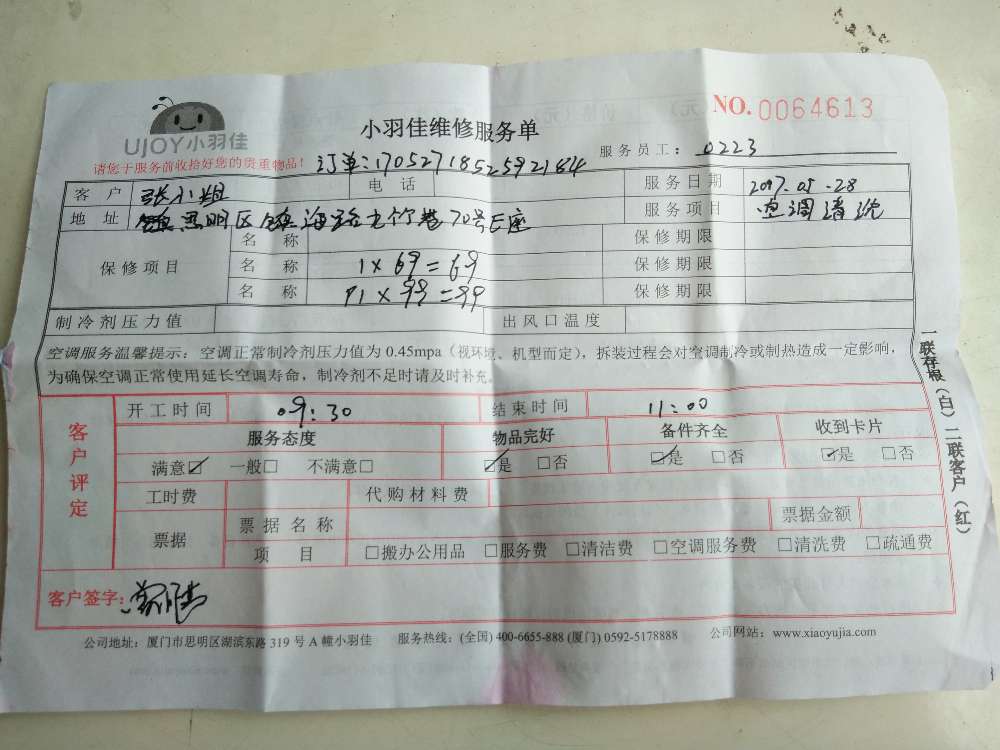 UJOY小羽佳
小羽佳维修服务单
NO.0064613
请您于服务前收拾好您的贵重物品!
订单:17052718525921
服务员工: 0223
客 户 张小姐 电 话 服务日期 2017.05.28
地 址 思明区镇海路 70号E座 服务项目 空调清洗
保修项目
名 称 保修期限
名 称 1×69=69 保修期限
名 称 1×99=99 保修期限
制冷剂压力值 出风口温度
空调服务温馨提示:空调正常制冷剂压力值为 0.45mpa(视环境、机型而定),拆装过程会对空调制冷或制热造成一定影响,
为确保空调正常使用延长空调寿命,制冷剂不足时请及时补充。
客户评定
开工时间 09:30 结束时间 11:00
服务态度 物品完好 备件齐全 收到卡片
满意☑ 一般□ 不满意□ ☑是 □否 ☑是 □否 ☑是 □否
工时费 代购材料费
票据 票据名称 票据金额
项 目 □搬办公用品 □服务费 □清洁费 □空调服务费 □清洗费 □疏通费
客户签字:
公司地址:厦门市思明区湖滨东路 319 号 A 幢小羽佳 服务热线:(全国) 400-6655-888 (厦门) 0592-5178888 公司网站:www.xiaoyujia.com
一联存根(白)二联客户(红)